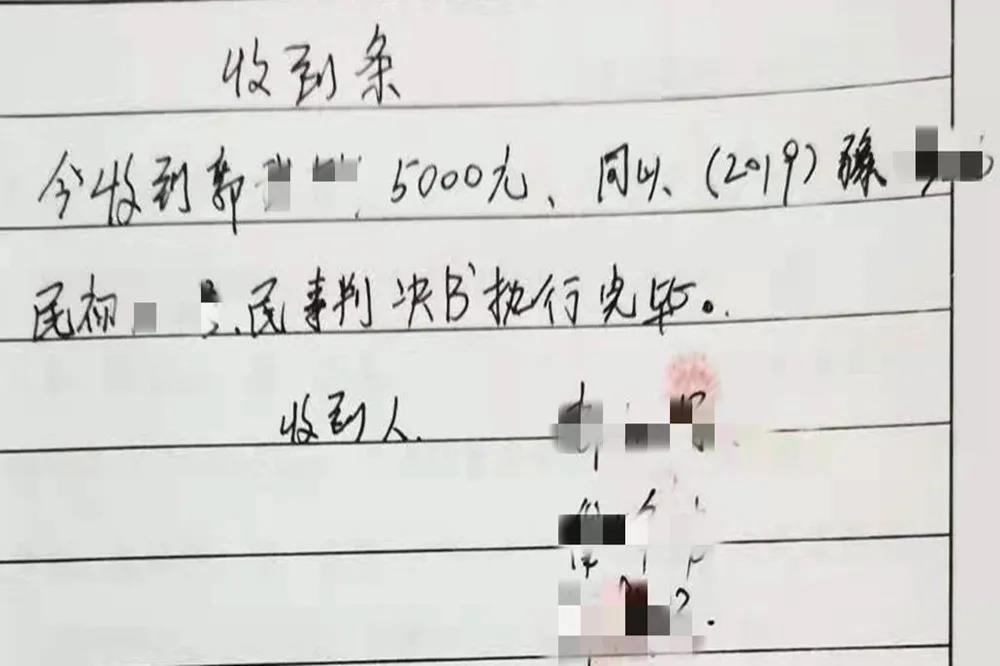 收到条
今收到郭 5000元、同以(2019)豫
民初 民事判决书执行完毕。
收到人